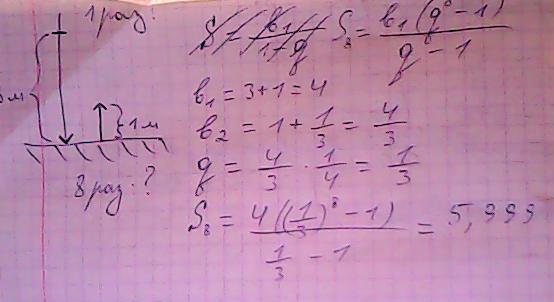 1 раз:
м
1 м
8 раз-?
S₈ = b₁(q⁸ - 1) / (q - 1)
b₁ = 3+1 = 4
b₂ = 1 + 1/3 = 4/3
q = 4/3 · 1/4 = 1/3
S₈ = 4((1/3)⁸ - 1) / (1/3 - 1) = 5,999